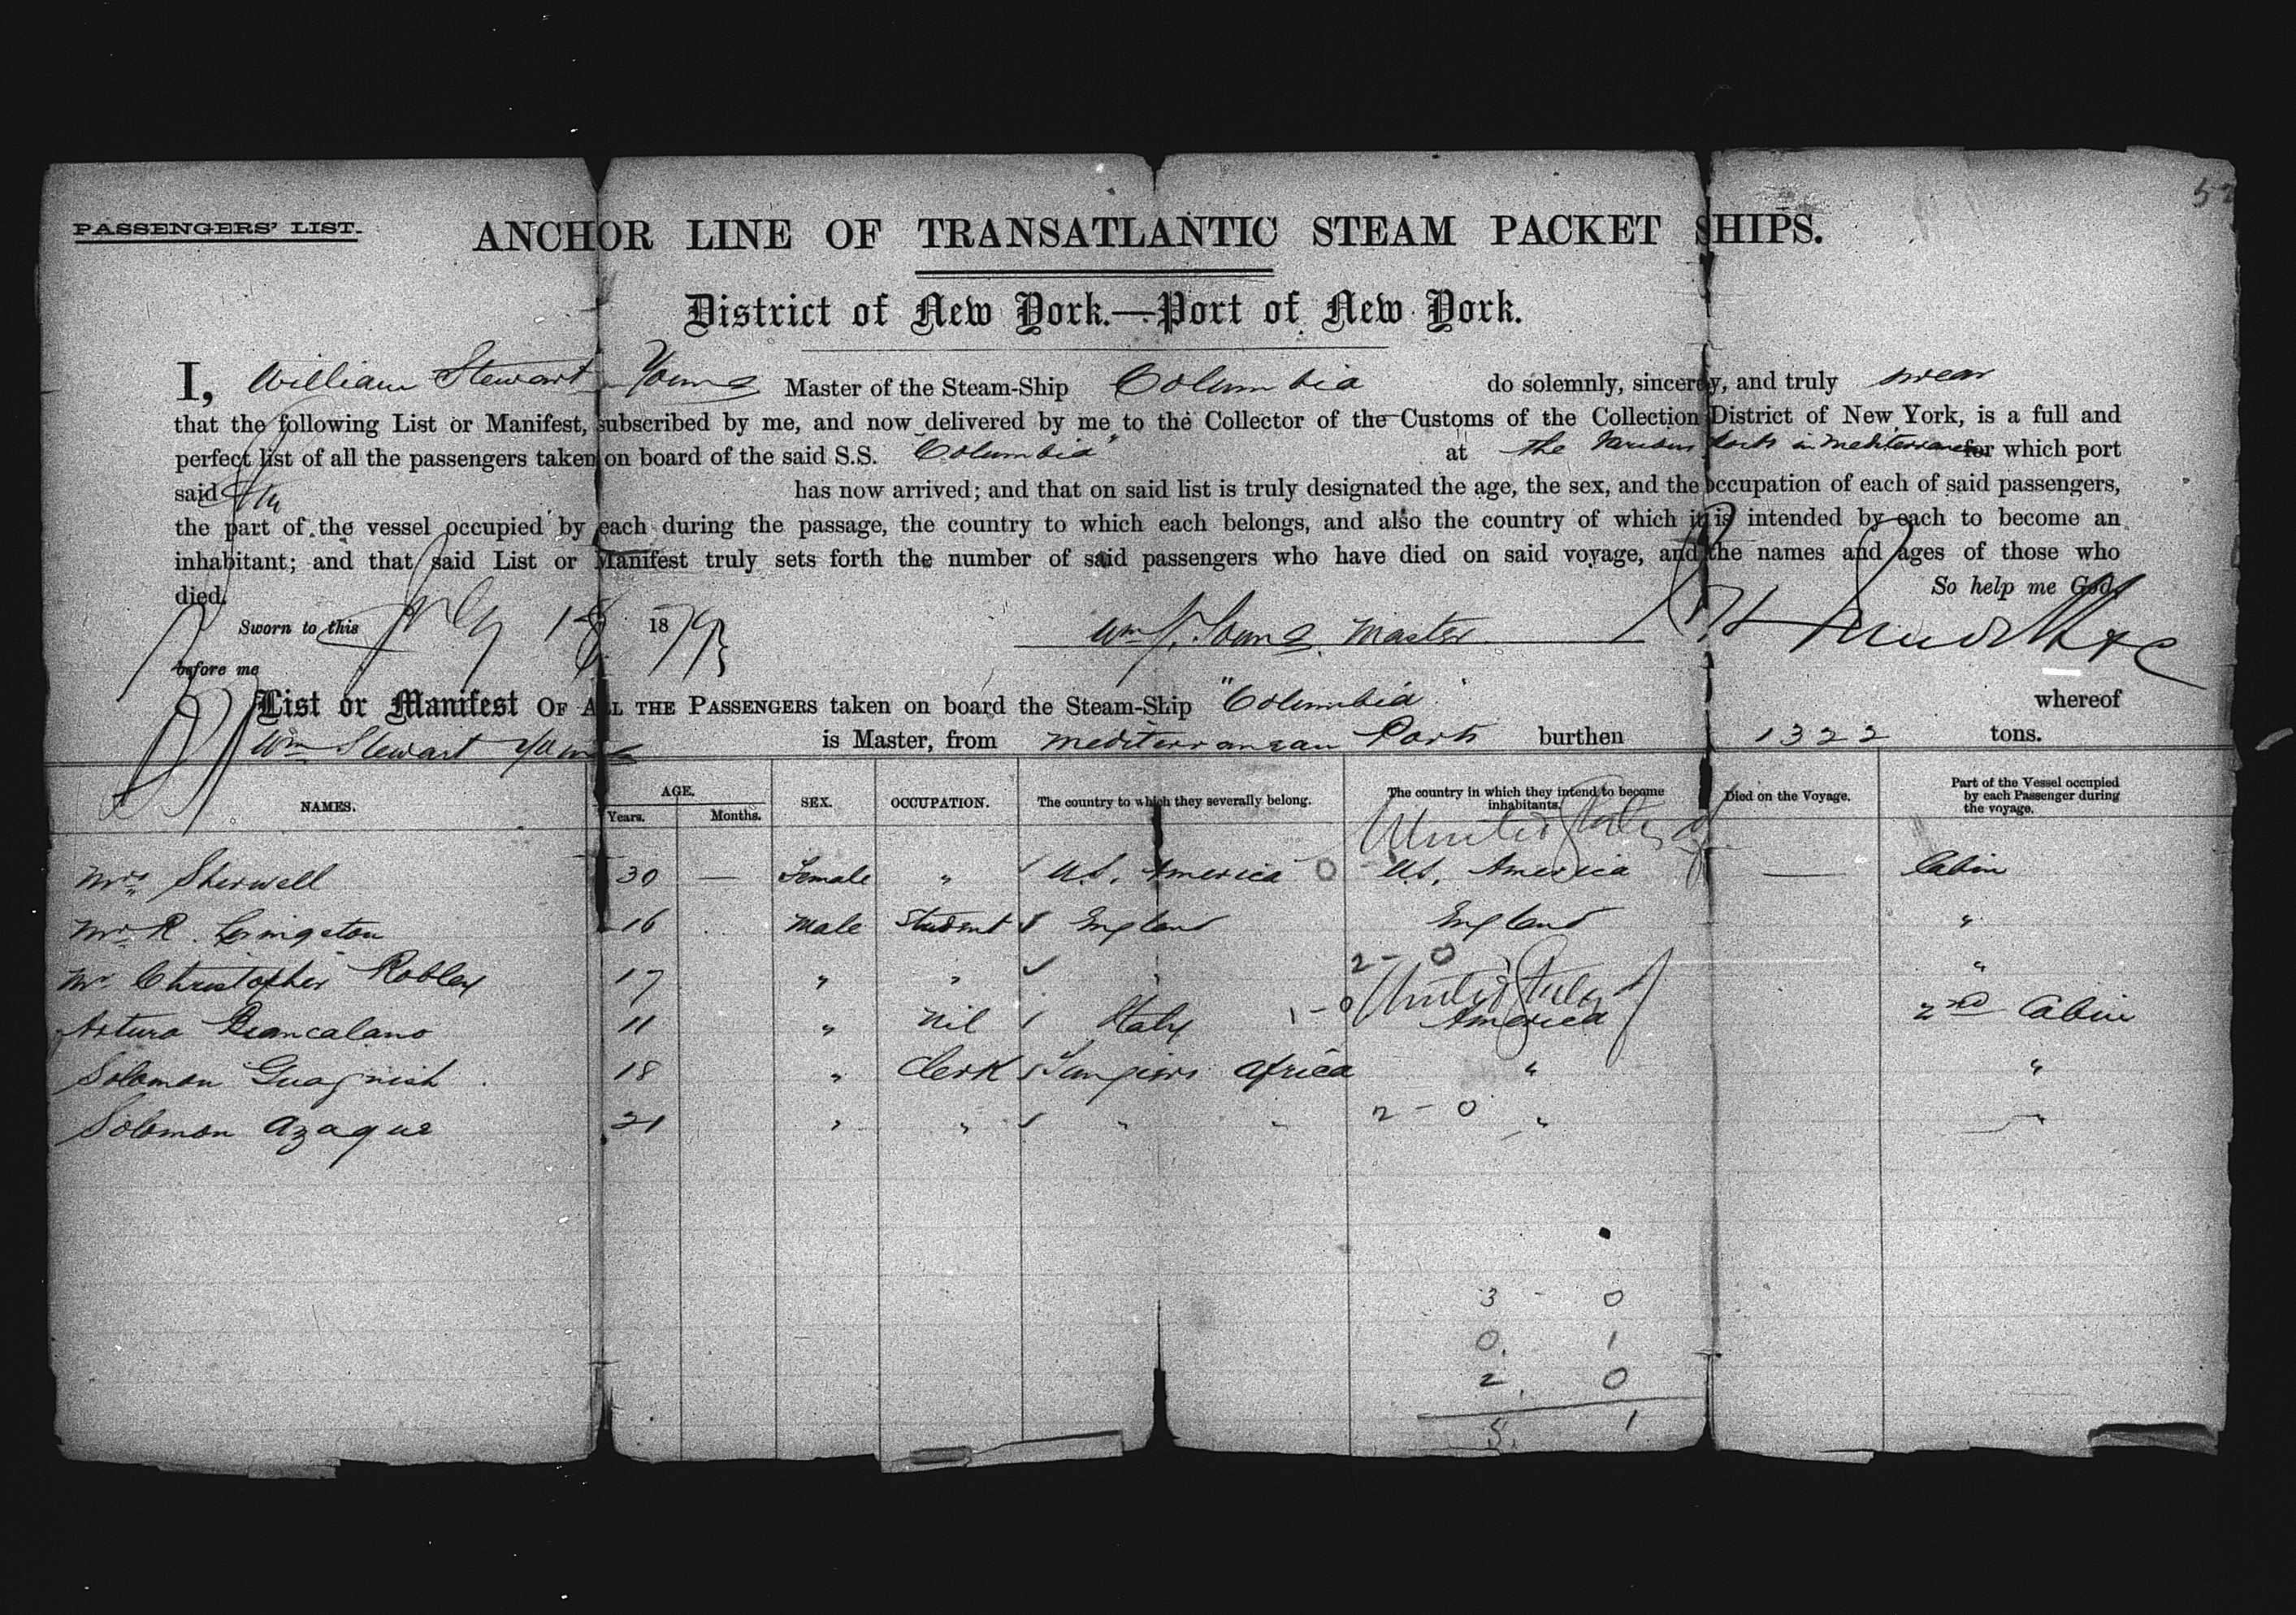 52
PASSENGERS' LIST.
ANCHOR LINE OF TRANSATLANTIC STEAM PACKET SHIPS.
District of New York.—Port of New York.
I, William Stewart Young Master of the Steam-Ship Columbia do solemnly, sincerely, and truly swear
that the following List or Manifest, subscribed by me, and now delivered by me to the Collector of the Customs of the Collection District of New York, is a full and
perfect list of all the passengers taken on board of the said S.S. "Columbia" at the Various Ports in Mediterranean for which port
said has now arrived; and that on said list is truly designated the age, the sex, and the occupation of each of said passengers,
the part of the vessel occupied by each during the passage, the country to which each belongs, and also the country of which it is intended by each to become an
inhabitant; and that said List or Manifest truly sets forth the number of said passengers who have died on said voyage, and the names and ages of those who
died. So help me God.
Sworn to this 18 1873 Wm S. Young Master
before me
List or Manifest OF ALL THE PASSENGERS taken on board the Steam-Ship "Columbia" whereof
Wm Stewart Young is Master, from Mediterranean Ports burthen 1322 tons.
NAMES. AGE. Years. Months. SEX. OCCUPATION. The country to which they severally belong. The country in which they intend to become inhabitants. Died on the Voyage. Part of the Vessel occupied by each Passenger during the voyage.
United States
Mrs Sherwell 30 — Female " U.S. America 0 U.S. America — Cabin
Mr R. Livingston 16 Male Student England England "
2 - 0
Mr Christopher Robley 17 " " " "
United States
Arturo Biancalano 11 " Nil Italy 1 - 0 America 2nd Cabin
Solomon Guagnish 18 " Clerk Tangiers Africa " "
2 - 0
Solomon Azaque 21 " " " " " "
3 - 0
0. 1
2. 0
5. 1